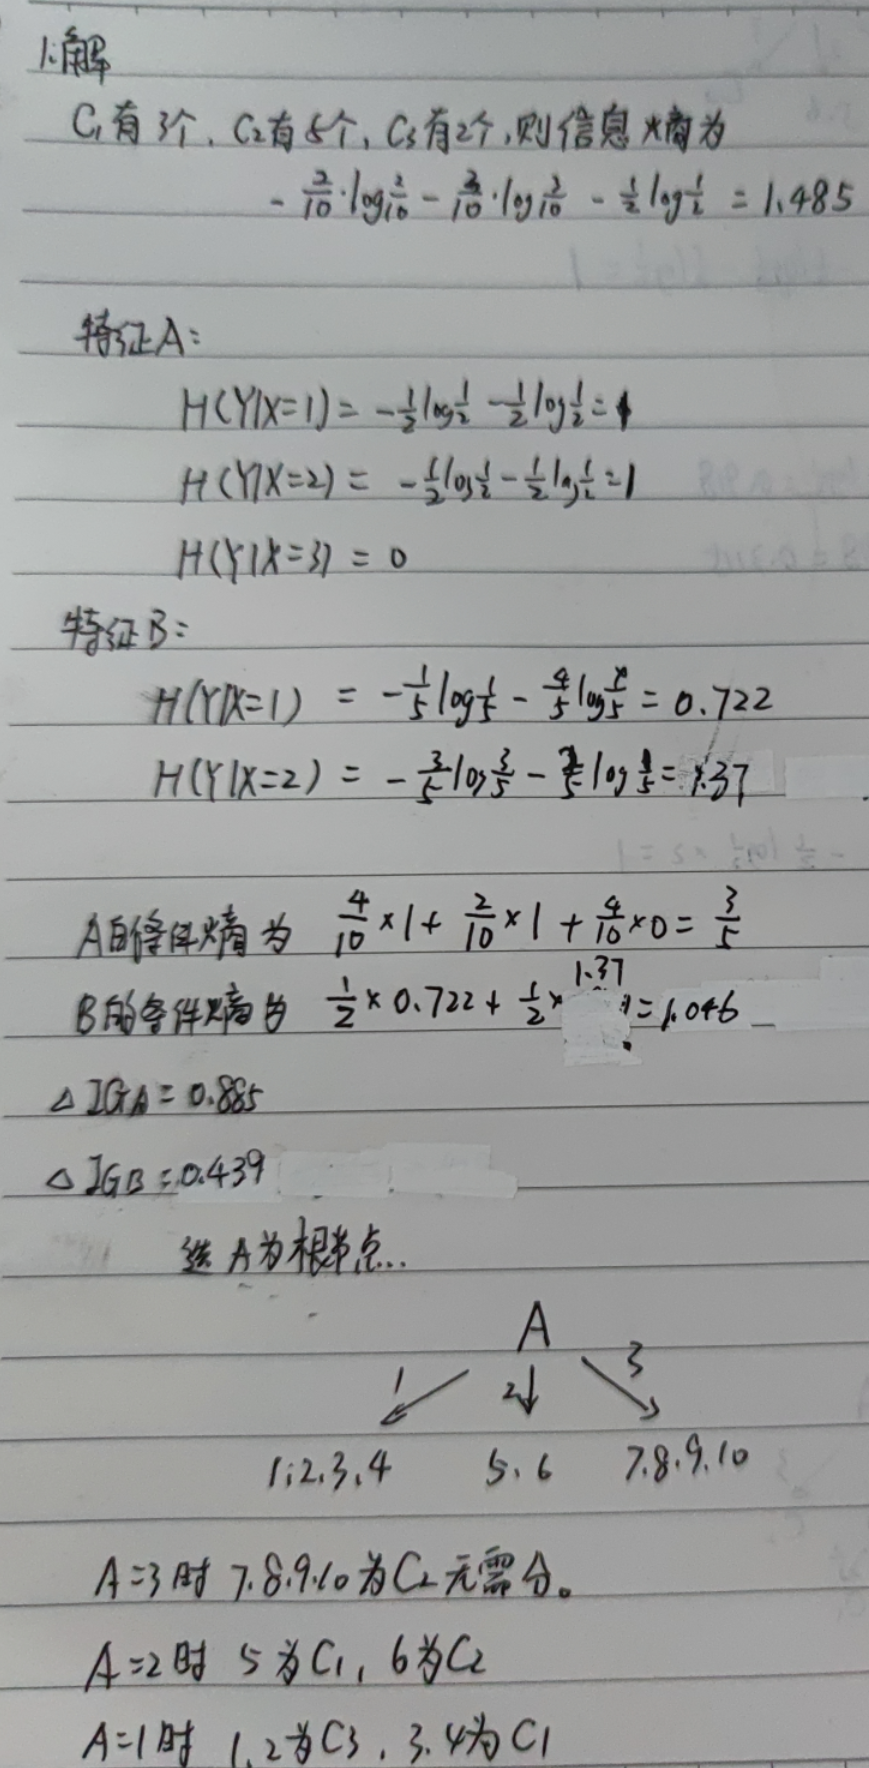 1.解
C₁有3个, C₂有5个, C₃有2个,则信息熵为
-2/10·log2/10 - 3/10·log3/10 - 1/2log1/2 = 1.485
特征A:
H(Y|X=1) = -1/2log1/2 - 1/2log1/2 = 1
H(Y|X=2) = -1/2log1/2 - 1/2log1/2 = 1
H(Y|X=3) = 0
特征B:
H(Y|X=1) = -1/5log1/5 - 4/5log4/5 = 0.722
H(Y|X=2) = -3/5log3/5 - 2/5log1/5 = 1.37
A的条件熵为 4/10×1 + 2/10×1 + 4/10×0 = 3/5
B的条件熵为 1/2×0.722 + 1/2×1.37 = 1.046
△IGA = 0.885
△IGB = 0.439
选A为根节点...
A
1 2 3
1,2.3.4 5.6 7.8.9.10
A=3时 7.8.9.10为C₂无需分。
A=2时 5为C₁, 6为C₂
A=1时 1.2为C3, 3.4为C1